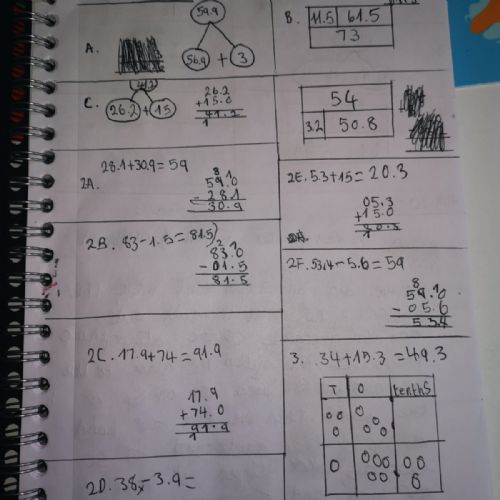 A.
59.9
56.9 + 3
B.
11.5 61.5
73
C.
26.2 + 15
26.2
+15.0
41.2
1
54
3.2 50.8
2A. 28.1+30.9=59
59.0
- 28.1
30.9
2E. 5.3+15=20.3
05.3
+15.0
20.3
1
2B. 83-1.5=81.5
83.0
- 01.5
81.5
2F. 53.4-5.6=59
59.0
- 05.6
53.4
2C. 17.9+74=91.9
17.9
+74.0
91.9
1
3. 34+15.3=49.3
T O tenths
2D. 38-3.9=